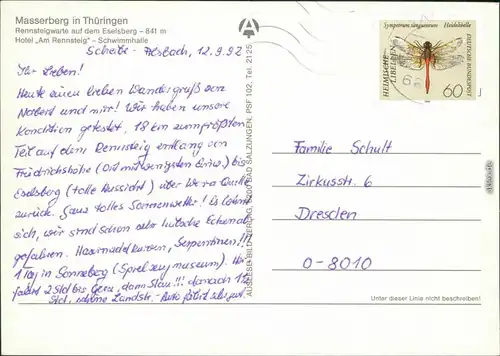 Masserberg in Thüringen
Rennsteigwarte auf dem Eselsberg – 841 m
Hotel „Am Rennsteig" – Schwimmhalle
Scheibe-Alsbach, 12.9.92
Ihr Lieben!
Heute einen lieben Wandergruß von
Norbert und mir! Wir haben unsere
Kondition getestet, 18 km zum größten
Teil auf dem Rennsteig entlang von
Friedrichshöhe (Ort mit wenigsten Einw.) bis
Eselsberg (tolle Aussicht) über Werra Quelle
zurück. Ganz tolles Sonnenwetter! Es lohnt
sich, wir sind schon sehr hübsche Ecken
gefahren. Haarnadelkurven, Serpentinen!!!
1 Tag in Sonneberg (Spielzeugmuseum). Wir
2 Std bis Gera, dann Stau!!! danach 1½
Std, schöne Landstr. - Auto fährt sehr gut.
AUSLESE-BILD-VERLAG, 6200 BAD SALZUNGEN, PSF 102, Tel. 2125
Sympetrum sanguineum Heidelibelle
HEIMISCHE LIBELLEN
DEUTSCHE BUNDESPOST
60
Familie Schult
Zirkusstr. 6
Dresden
O-8010
Unter dieser Linie nicht beschreiben!